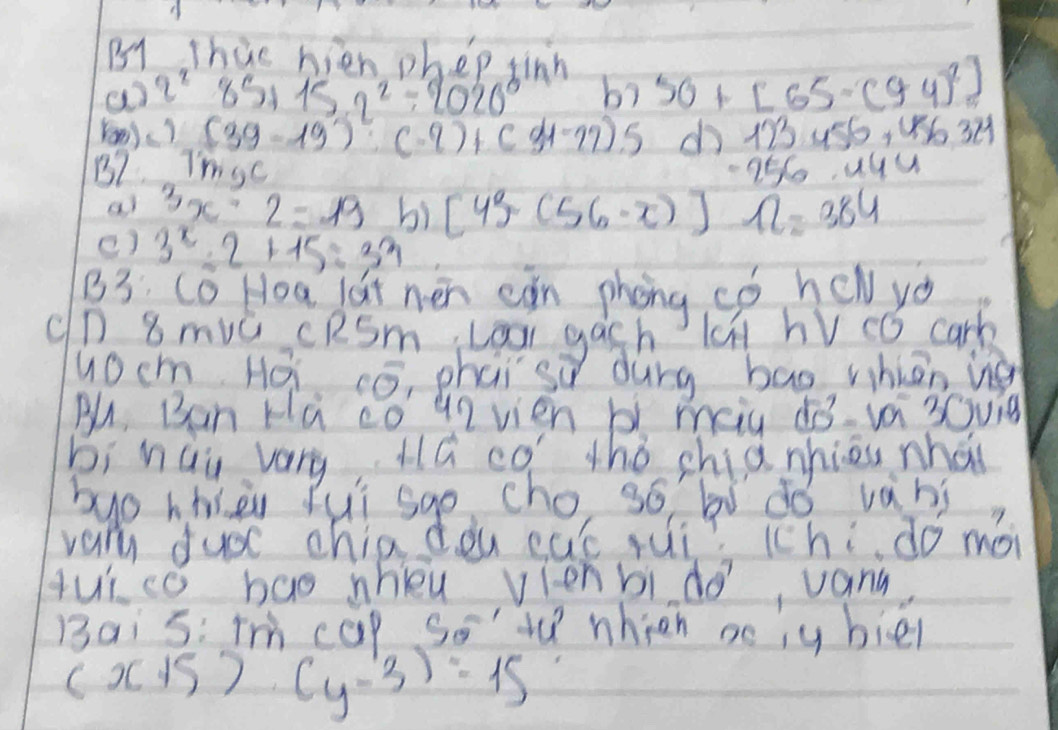 B1 Thực hiện phép tính
a) 2² 85 + 15 . 2² - 2020⁰ b) 50 + [65 - (9 4)²]
c) (39 - 19) : (-2) + ( 22) 5 d) 123 . 456 + 456 . 321
B2. Tìm x - 256 . 444
a) 3x - 2 = 19 b) [43 - (56 - x)] 12 = 384
c) 3ˣ . 2 + 15 = 33
B3: Cô Hoa lát nền căn phòng có hcN vơ
CD 8m và CR 5m. Loại gạch lát hV có cạnh
40cm. Hỏi cô, phải sử dụng bao nhiên viê
B4. Bạn Hà có 42 viên bi màu đỏ và 30 viê
bi màu vàng. Hà có thể chia nhiều nhất
bao nhiêu túi sao cho số bi đỏ và bi
vàng được chia đều các túi. Khi đó mỗi
túi có bao nhiêu viên bi đỏ, vàng.
Bài 5: Tìm cặp số tự nhiên x, y biết
(x + 5) . (y - 3) = 15